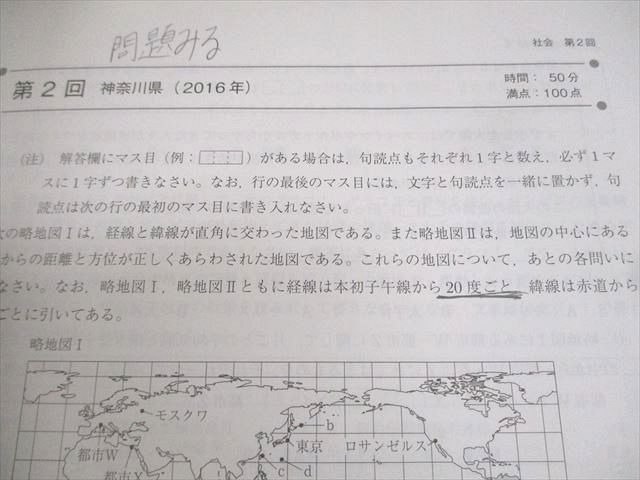 問題みる
社会 第2回
第2回 神奈川県（2016年）
時間：50分
満点：100点
（注） 解答欄にマス目（例：）がある場合は，句読点もそれぞれ1字と数え，必ず1マ
スに1字ずつ書きなさい。なお，行の最後のマス目には，文字と句読点を一緒に置かず，句
読点は次の行の最初のマス目に書き入れなさい。
の略地図Ⅰは，経線と緯線が直角に交わった地図である。また略地図Ⅱは，地図の中心にある
からの距離と方位が正しくあらわされた地図である。これらの地図について，あとの各問いに
なさい。なお，略地図Ⅰ，略地図Ⅱともに経線は本初子午線から20度ごと，緯線は赤道から
ごとに引いてある。
略地図Ⅰ
モスクワ
b
東京
ロサンゼルス
都市W
c
d
都市X